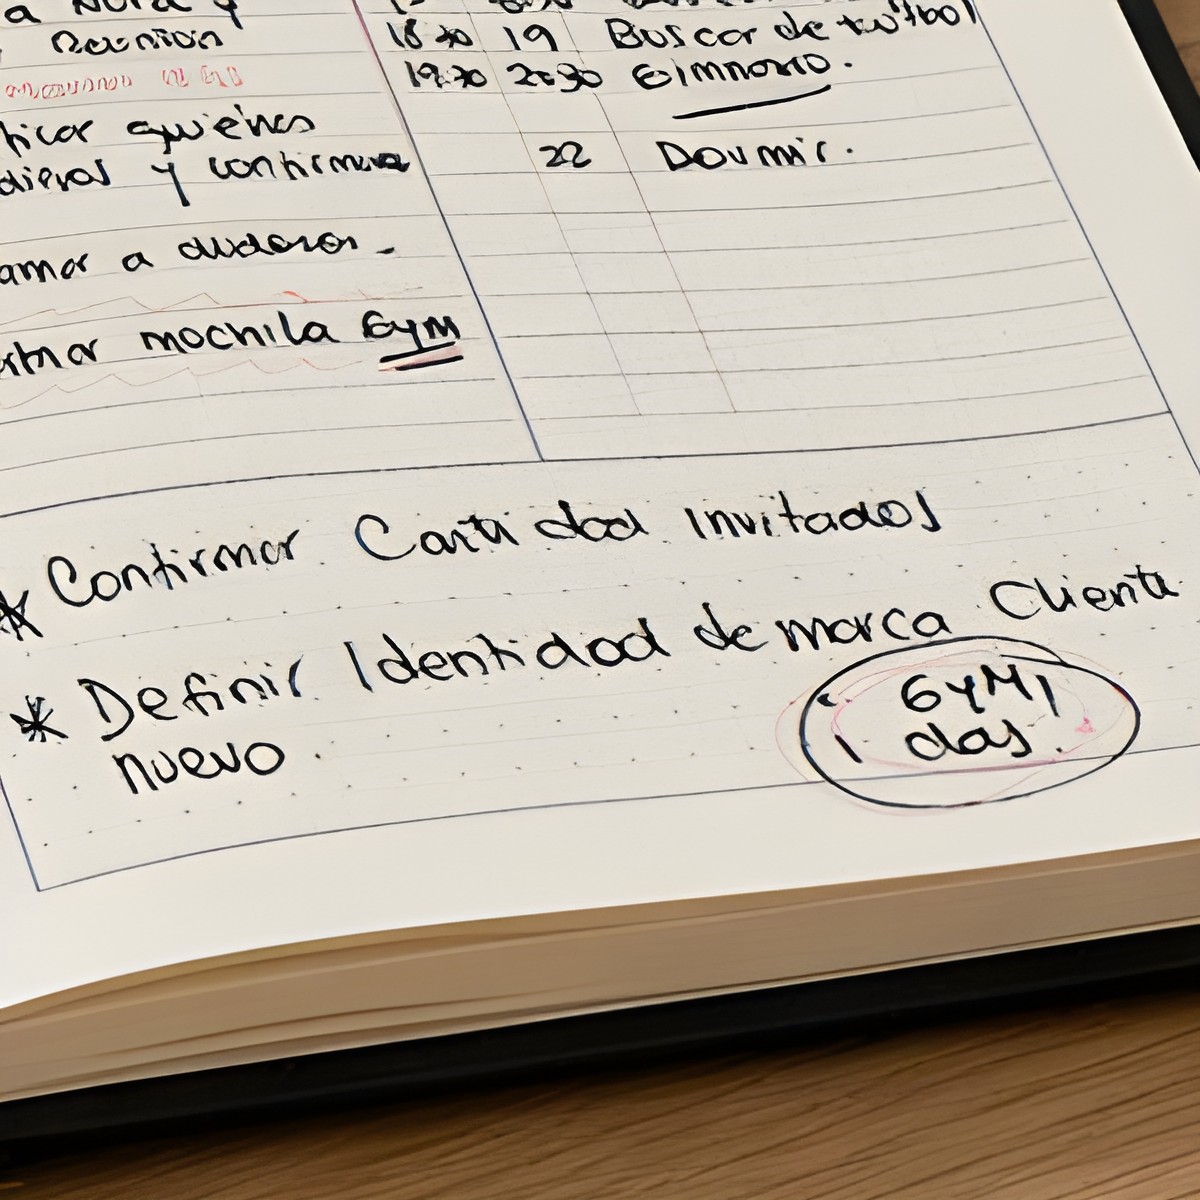 a Nora y
Reunion
ticar quiénes
dieras y confirmar
amar a dudosos.
armar mochila GYM
18 30 19 Buscar de fútbol
19:30 20:30 Gimnasio.
22 Dormir.
* Confirmar Cantidad invitados
* Definir Identidad de marca Cliente
nuevo.
GYM,
das.